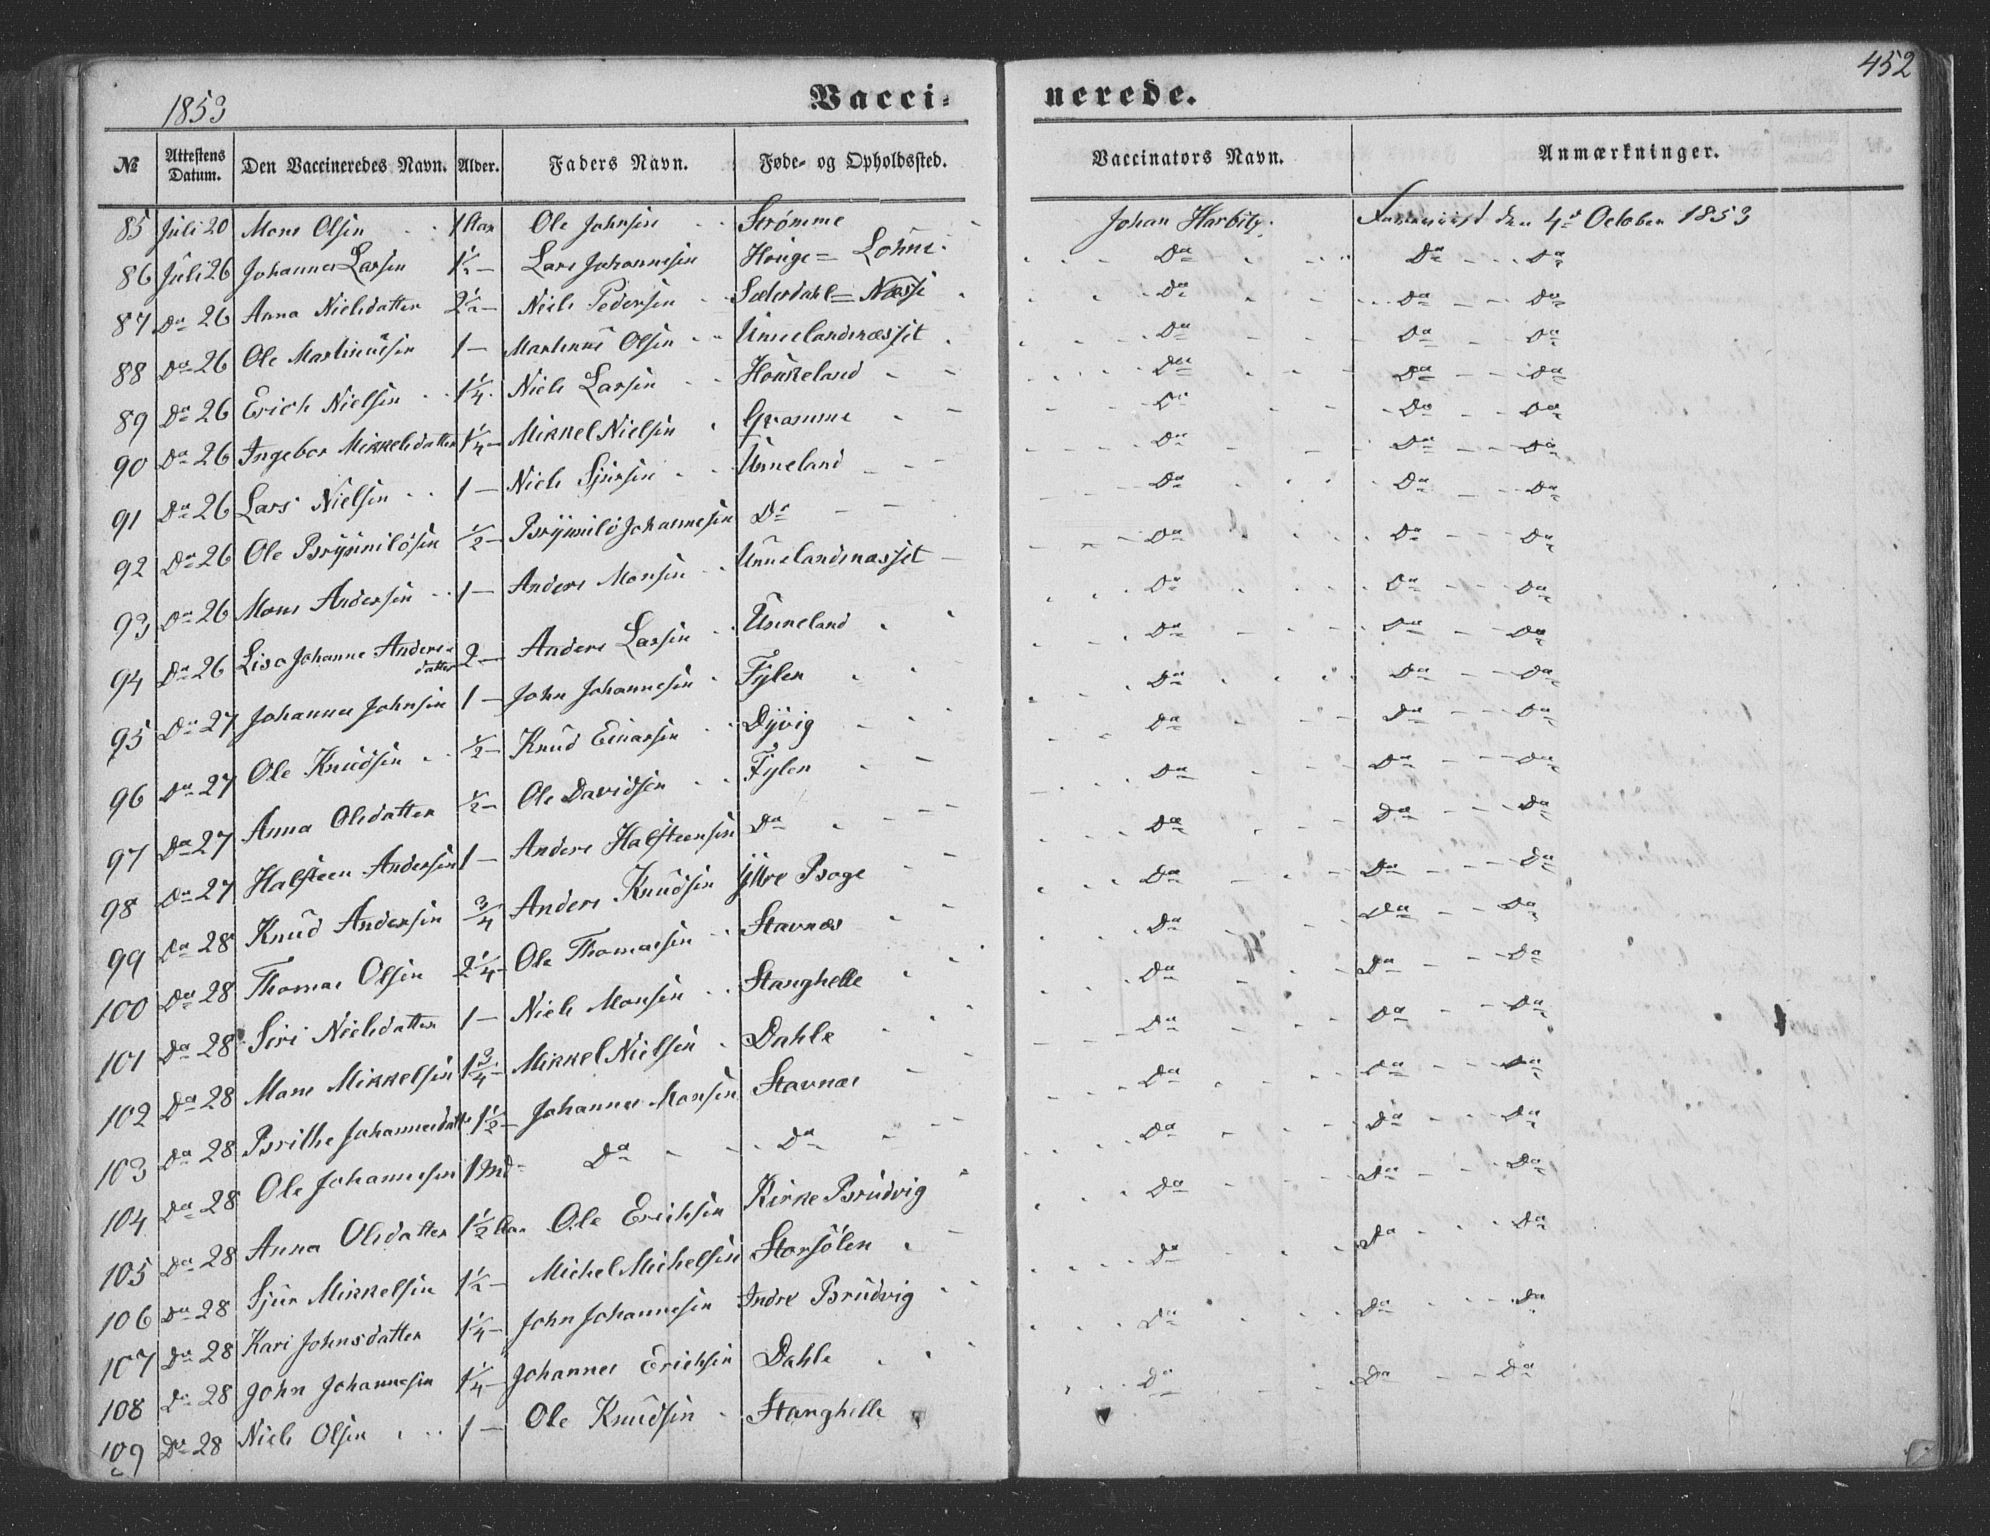 452
1853
Vacci- nerede.
№ Attestens Datum. Den Vaccineredes Navn. Alder. Faders Navn. Føde- og Opholdssted. Vaccinators Navn. Anmærkninger.
85 Juli 20 Mons Olsen 1 Aar Ole Johnsen Strømme Johan Harbitz. den 4de October 1853
86 Juli 26 Johannes Larsen 1½ - Lars Johannesen Houge = Lohne Do Do - Do
87 Do 26 Anna Nielsdatter 2½ - Niels Pedersen Sæterdahl = Næsse Do Do - Do
88 Do 26 Ole Martinusen 1 - Martinus Olsen Unnelandsnæsset Do Do - Do
89 Do 26 Erich Nielsen 1¼ Niels Larsen Houkeland Do Do - Do
90 Do 26 Ingebor Mikkelsdatter 1¼ - Mikkel Nielsen Gramme Do Do - Do
91 Do 26 Lars Nielsen 1 - Niels Sjursen Unneland Do Do - Do
92 Do 26 Ole Brynnildsen ½ - Brynnild Johannesen Do Do Do - Do
93 Do 26 Mons Andersen 1 - Anders Monsen Unnelandsnæsset Do Do - Do
94 Do 26 Lisa Johanne Anders- datter 2 - Anders Larsen Unneland Do Do - Do
95 Do 27 Johannes Johnsen 1 - John Johannesen Fylen Do Do - Do
96 Do 27 Ole Knudsen ½ - Knud Einarsen Dyvig Do Do - Do
97 Do 27 Anna Olsdatter ½ - Ole Davidsen Fylen Do Do - Do
98 Do 27 Halsteen Andersen 1 - Anders Halsteensen Do Do Do - Do
99 Do 28 Knud Andersen ¾ Anders Knudsen Yttre Boge Do Do - Do
100 Do 28 Thomas Olsen 2¼ - Ole Thomassen Stavnæs Do Do - Do
101 Do 28 Siri Nielsdatter 1 - Niels Monsen Stanghelle Do Do - Do
102 Do 28 Mons Mikkelsen 1¾ - Mikkel Nielsen Dahle Do Do - Do
103 Do 28 Brithe Johannesdatter 1½ - Johannes Monsen Stavnæs Do Do - Do
104 Do 28 Ole Johannesen 1 Md Do Do Do Do - Do
105 Do 28 Anna Olsdatter 1½ Aar Ole Erichsen Kirke Brudvig Do Do - Do
106 Do 28 Sjur Mikkelsen 1½ - Michel Michelsen Storsølen Do Do - Do
107 Do 28 Kari Johnsdatter 1¼ - John Johannesen Indre Brudvig Do Do - Do
108 Do 28 John Johannesen 1¼ - Johannes Erichsen Dahle Do Do - Do
109 Do 28 Niels Olsen 1 - Ole Knudsen Stanghelle